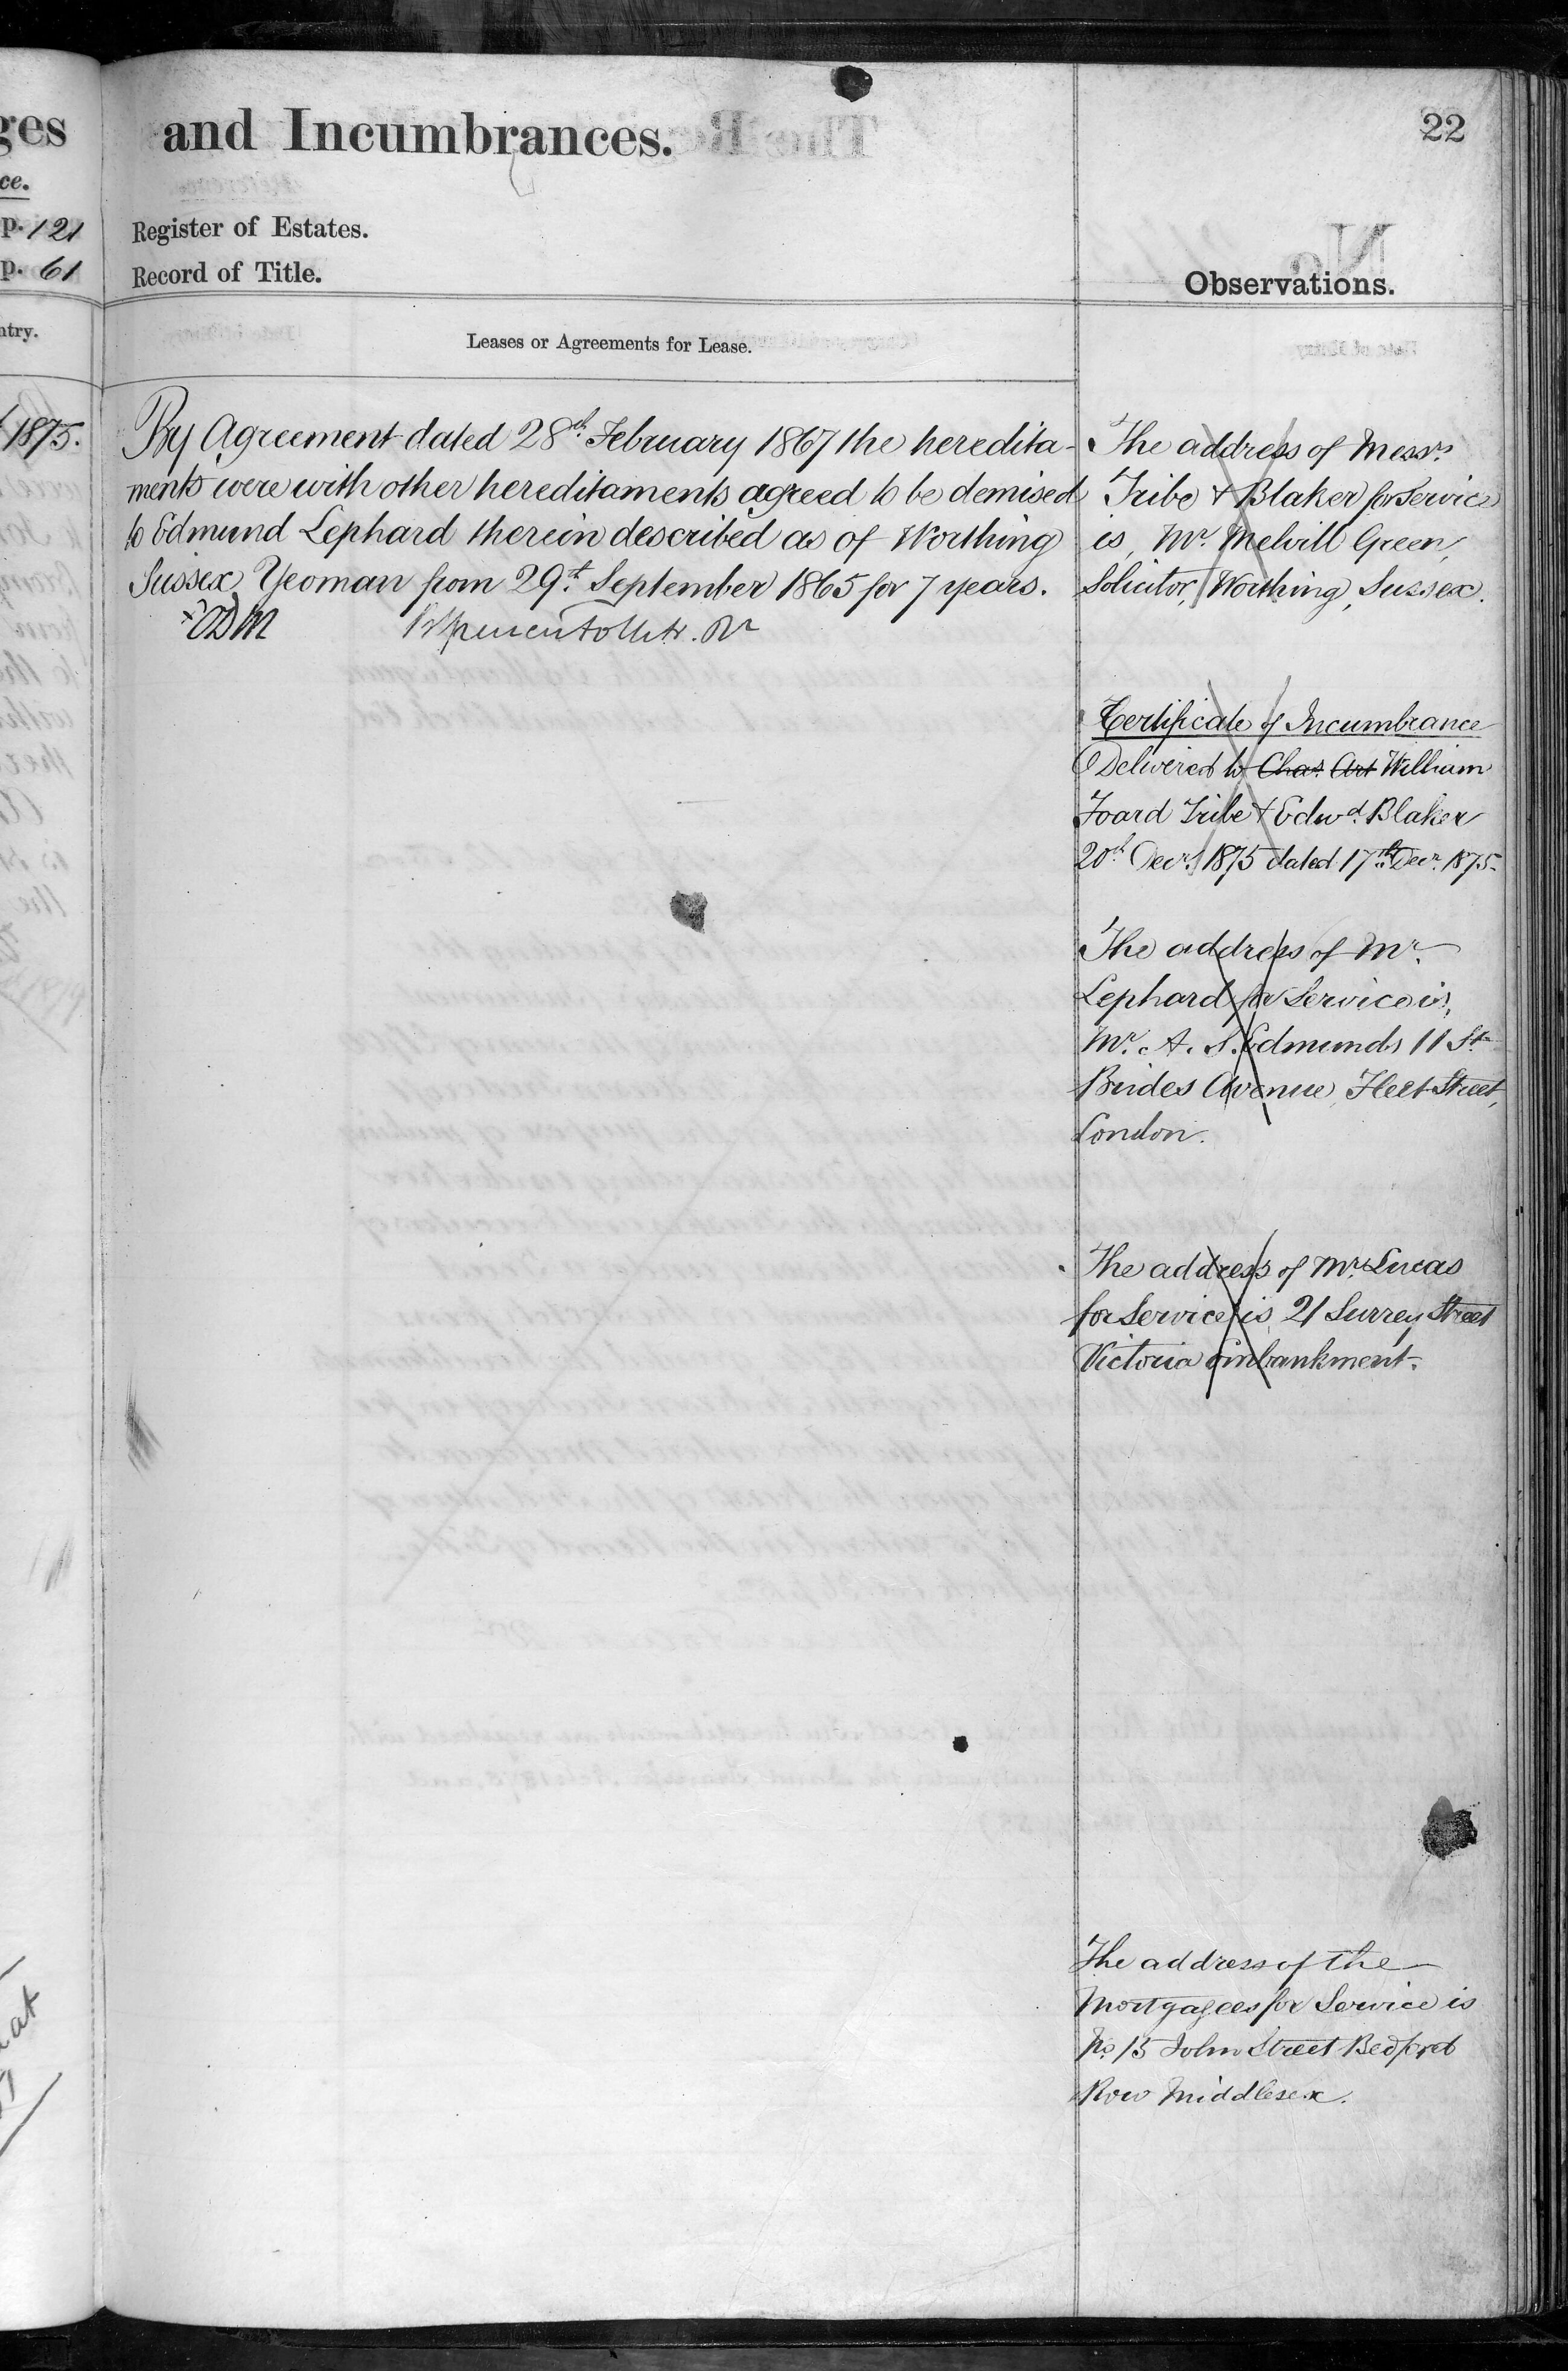 ges
ce.
p. 121
p. 61
ntry.
1875.
and Incumbrances.
22
Register of Estates.
Record of Title.
Observations.
Leases or Agreements for Lease.
By Agreement dated 28th. February 1867 the heredita-
ments were with other hereditaments agreed to be demised
to Edmund Lephard therein described as of Worthing
Sussex Yeoman from 29th. September 1865 for 7 years.
The address of Messrs.
Tribe & Blaker for Service
is, Mr. Melvill Green,
Solicitor, Worthing, Sussex.
Certificate of Incumbrance
Delivered to Chas. Art William
Foard Tribe & Edwd. Blaker
20th Decr. 1875 dated 17th Decr. 1875.
The address of Mr.
Lephard for Service is,
Mr. A. S. Edmunds 11 St.
Brides Avenue, Fleet Street,
London.
The address of Mrs Lucas
for Service is, 21 Surrey Street
Victoria Embankment.
The address of the
Mortgagees for Service is
No. 15 John Street Bedford
Row Middlesex.
at